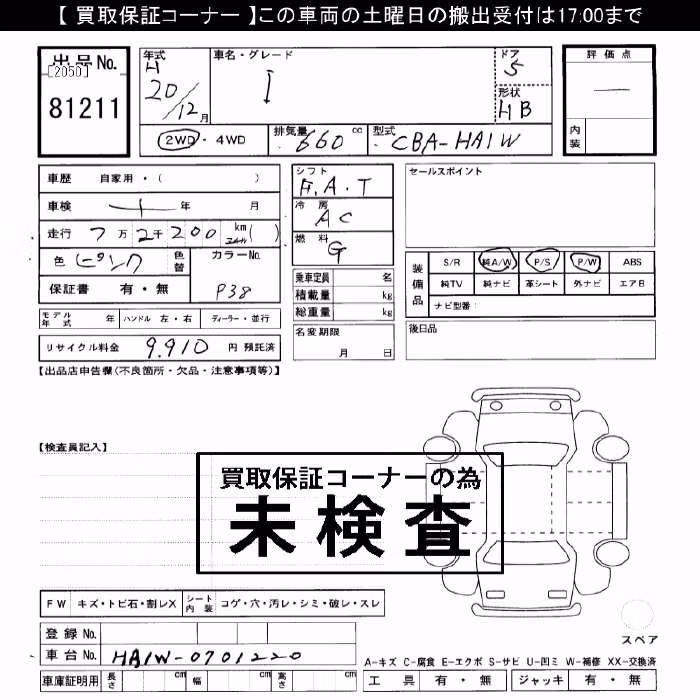 【 買取保証コーナー 】この車両の土曜日の搬出受付は17:00まで
出品No.
[2050]
81211
年式
H
20/12月
車名・グレード
I
ドア
5
形状
HB
評価点
—
内装
2WD・4WD
排気量 660 cc
型式 CBA-HA1W
車歴 自家用・( )
車検 年 月
走行 7万2千200 km ( )
色 ピンク
色替
カラーNo.
P38
保証書 有・無
シフト
F.A.T
冷房
AC
燃料
G
乗車定員 名
積載量 kg
総重量 kg
セールスポイント
装備品
S/R 純A/W P/S P/W ABS
純TV 純ナビ 革シート 外ナビ エアB
ナビ型番:
モデル年式 年 ハンドル 左・右 ディーラー・並行
リサイクル料金 9.910 円 預託済
名変期限
月 日
後日品
【出品店申告欄(不良箇所・欠品・注意事項等)】
【検査員記入】
買取保証コーナーの為
未検査
FW キズ・トビ石・割レX シート内装 コゲ・穴・汚レ・シミ・破レ・スレ
スペア
登録No.
車台No. HA1W-0701220
車庫証明用 長さ cm 幅 cm 高さ cm
A-キズ C-腐食 E-エクボ S-サビ U-凹ミ W-補修 XX-交換済
工具 有・無 ジャッキ 有・無